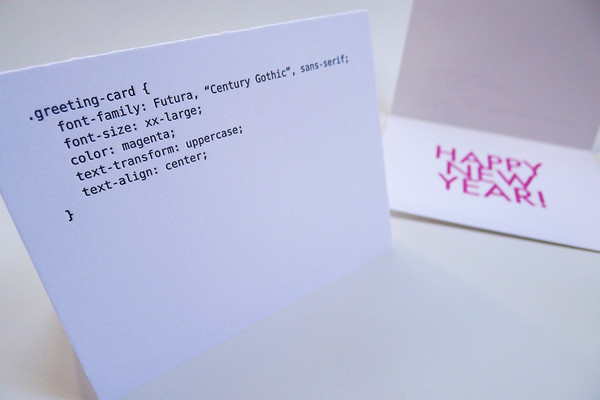 .greeting-card {
font-family: Futura, “Century Gothic”, sans-serif;
font-size: xx-large;
color: magenta;
text-transform: uppercase;
text-align: center;
}
HAPPY
NEW
YEAR!